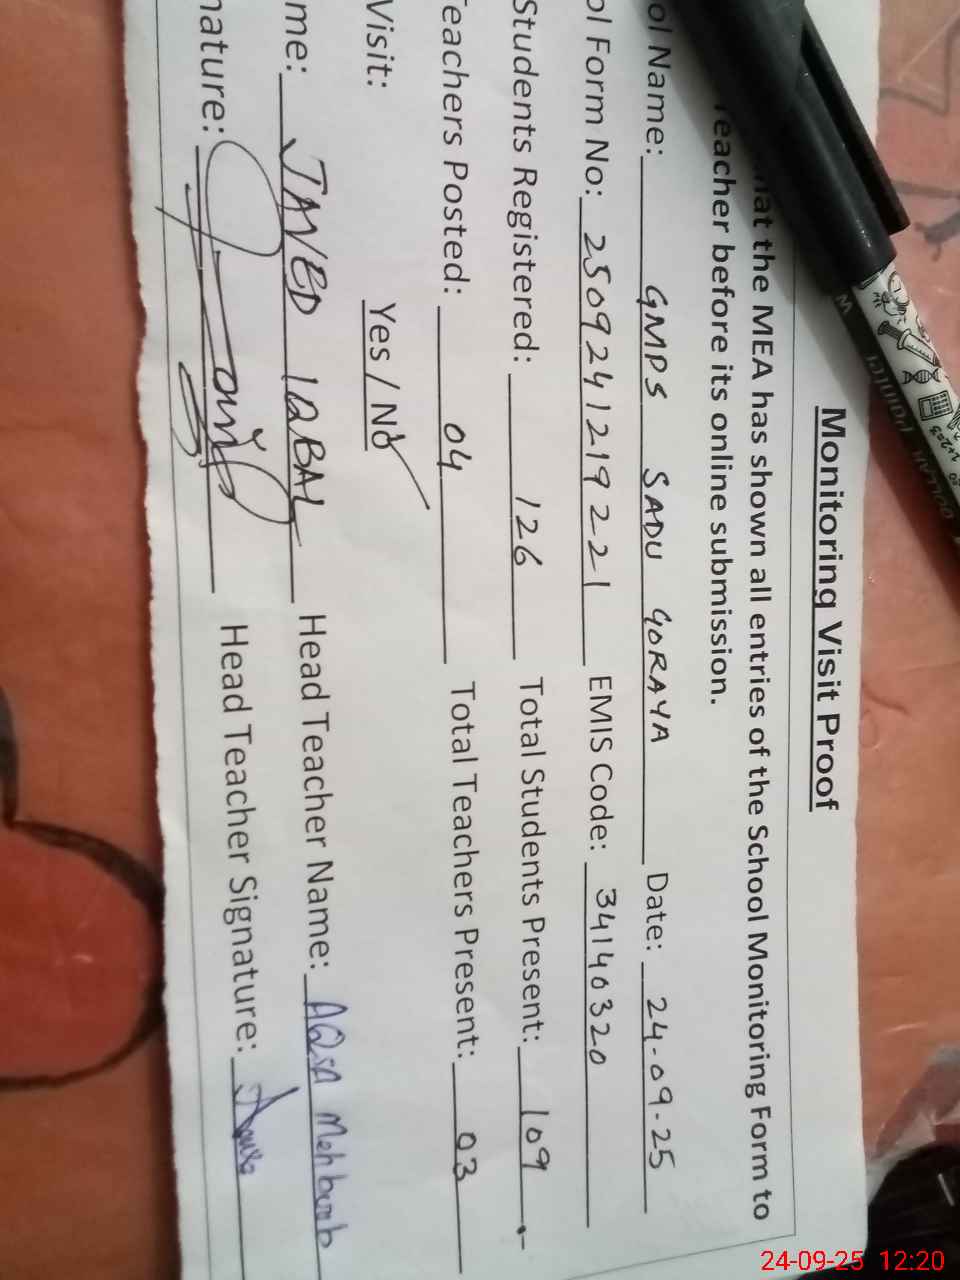 Monitoring Visit Proof
hat the MEA has shown all entries of the School Monitoring Form to
Teacher before its online submission.
ol Name: GMPS SADU GORAYA Date: 24-09-25
ol Form No: 2509241219221 EMIS Code: 34140320
Students Registered: 126 Total Students Present: 109
Teachers Posted: 04 Total Teachers Present: 03
Visit: Yes / No
me: JAVED IQBAL Head Teacher Name: AQSA Mehboob
nature: Head Teacher Signature:
24-09-25 12:20